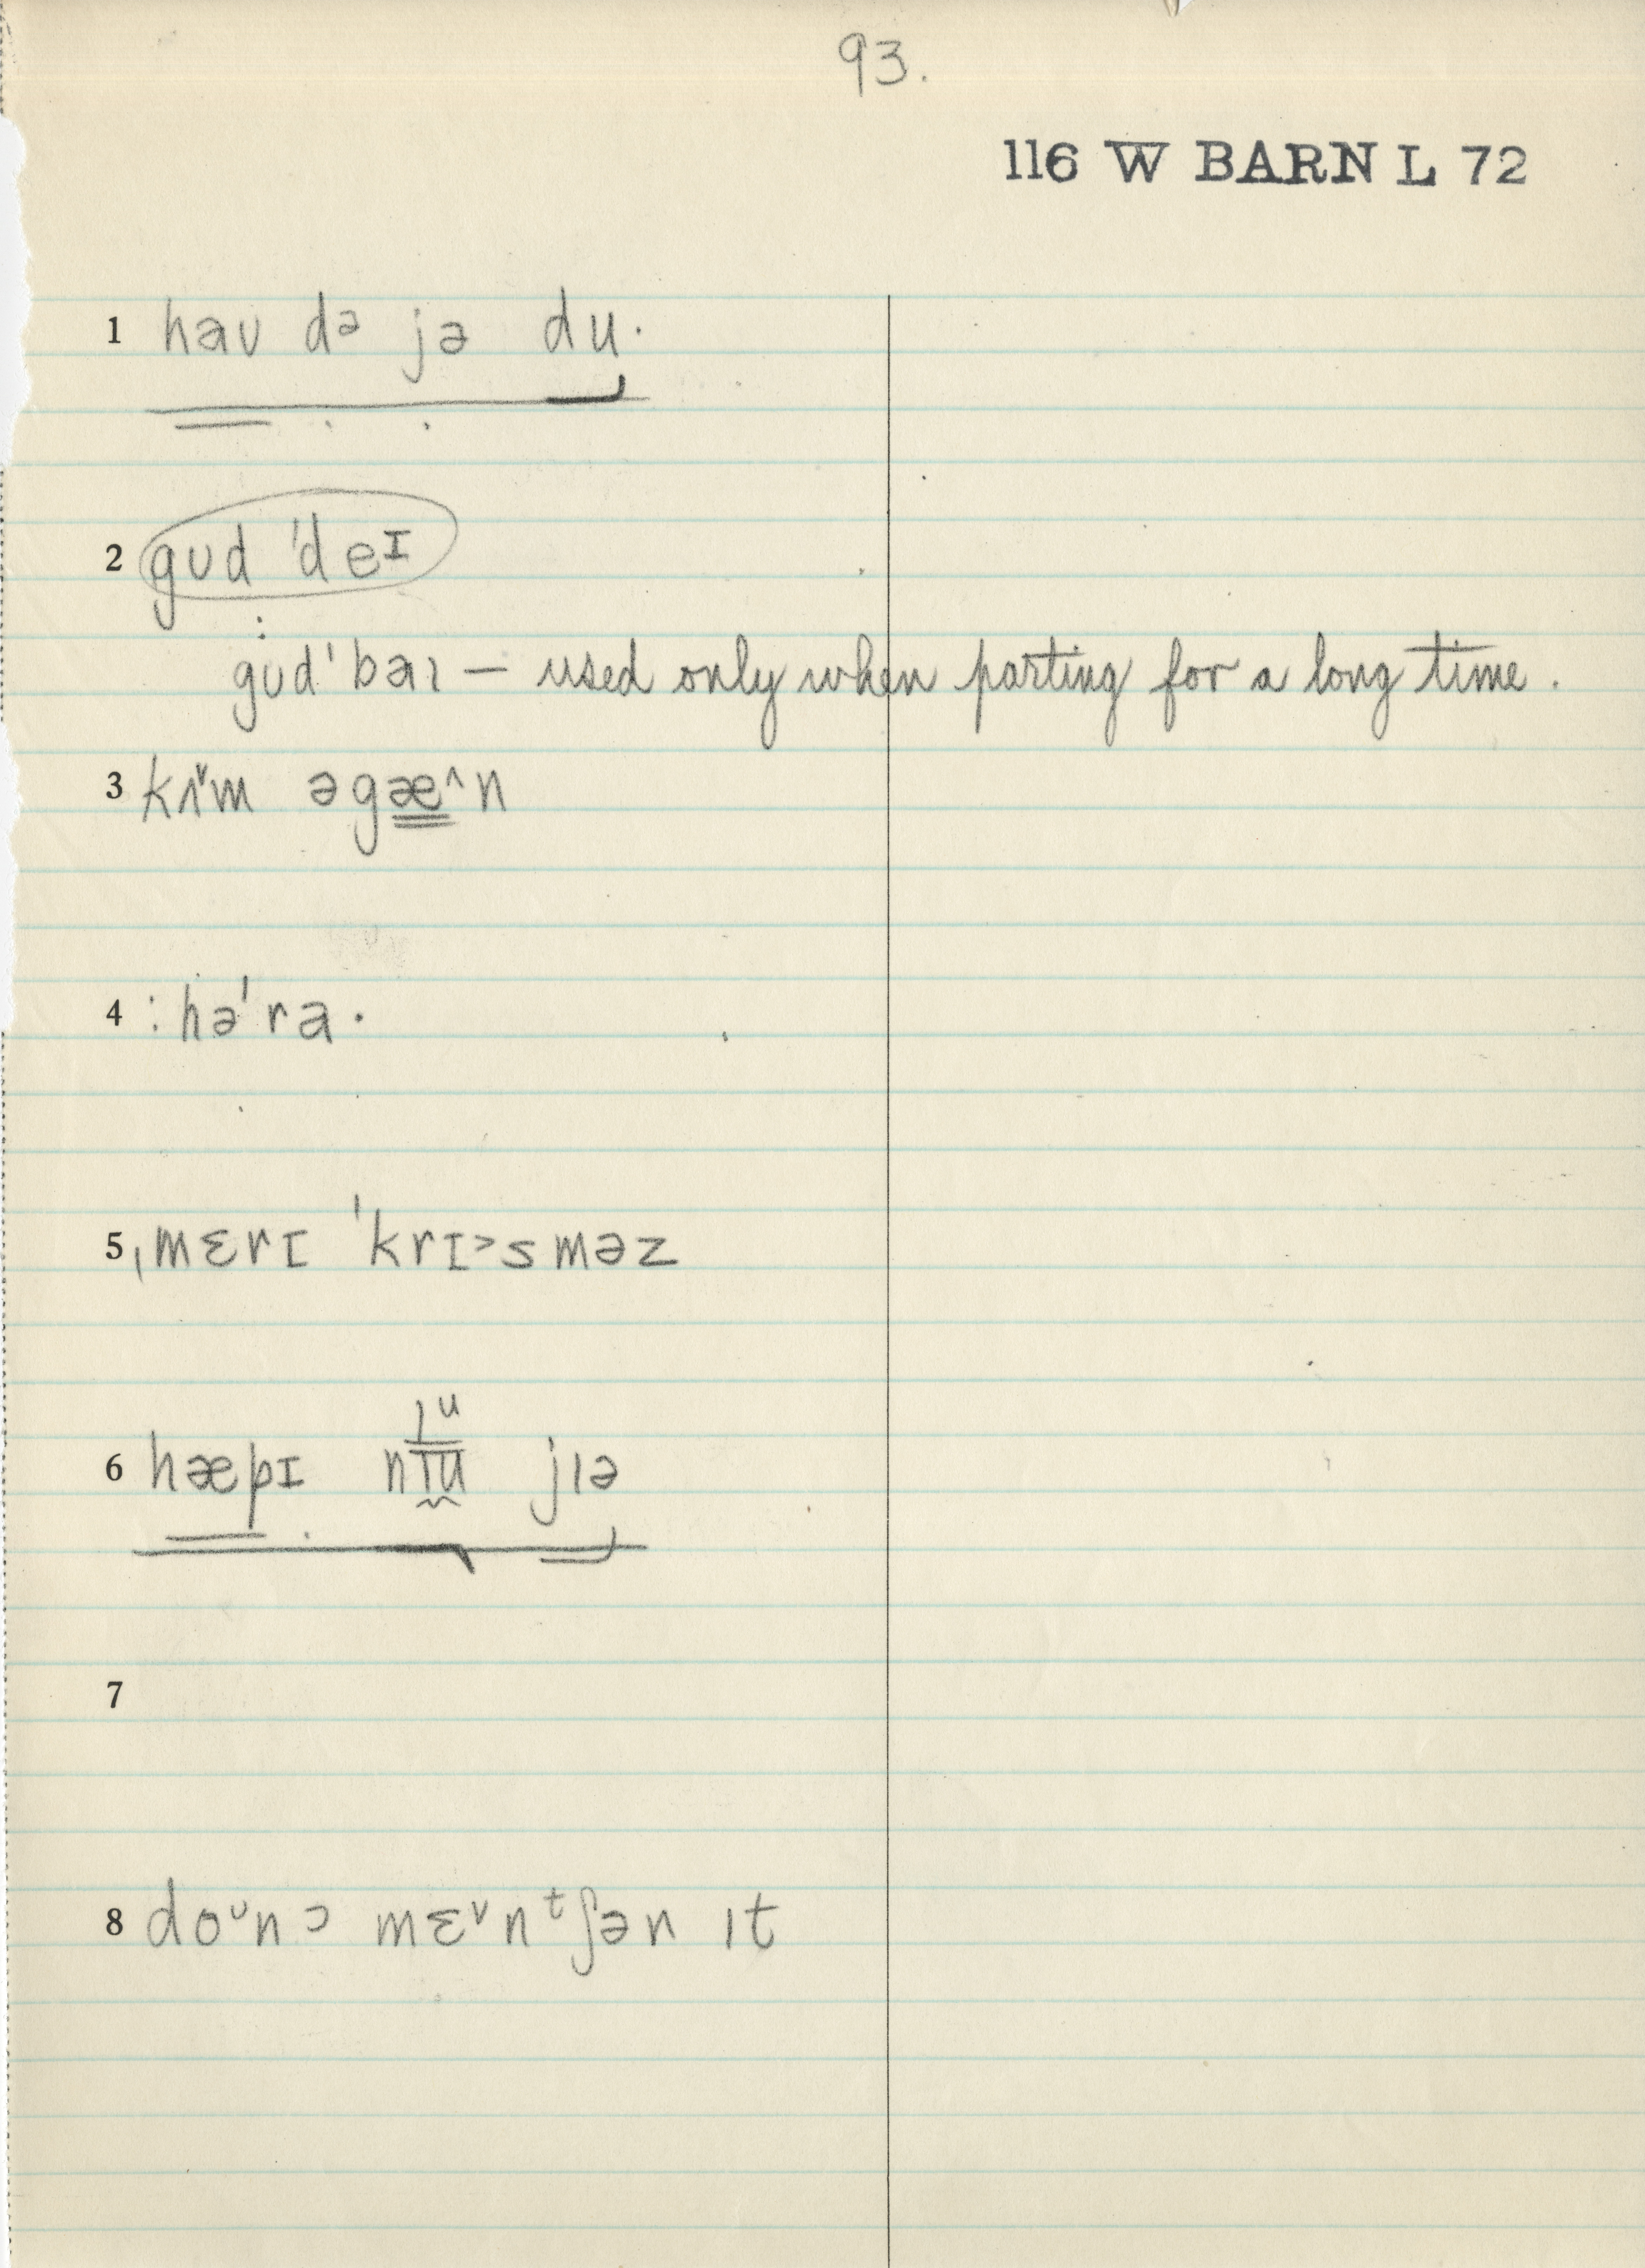 93.
116 W BARN L 72
1 haʊ də jə du·
2 gʊd ˈdeɪ
: gʊdˈbaɪ — used only when parting for a long time.
3 kɪ˅m əgæ^n
4 : həˈra·
5 ˌmɛrɪ ˈkrɪ˃sməz
6 hæpɪ nɪu jɪə
ɪᵘ
7
8 doᶷn ɔ mɛ˅nᵗʃən ɪt